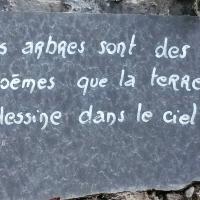 s arbres sont des
oèmes que la terre
dessine dans le ciel